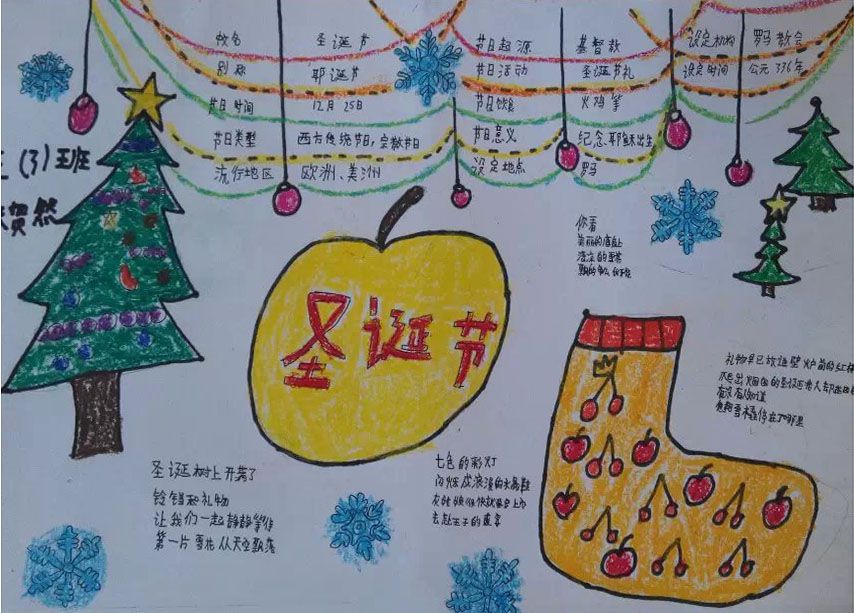 节名 圣诞节 节日起源 基督教 设定机构 罗马教会
别称 耶诞节 节日活动 圣诞节礼 设定时间 公元336年
节日时间 12月25日 节日饮食 火鸡等
节日类型 西方传统节日,宗教节日 节日意义 纪念耶稣出生
流行地区 欧洲、美洲 设定地点 罗马
(3)班
贺然
圣诞节
你看
美丽的
飘的
礼物早已放进壁炉前的红
爬出烟囱的圣诞老人
有没有人知道
雪橇停在了哪里
圣诞树上开满了
铃铛和礼物
让我们一起静静等待
第一片雪花从天空飘落
七色的彩灯
闪烁成浪漫的水晶鞋
去赴王子的